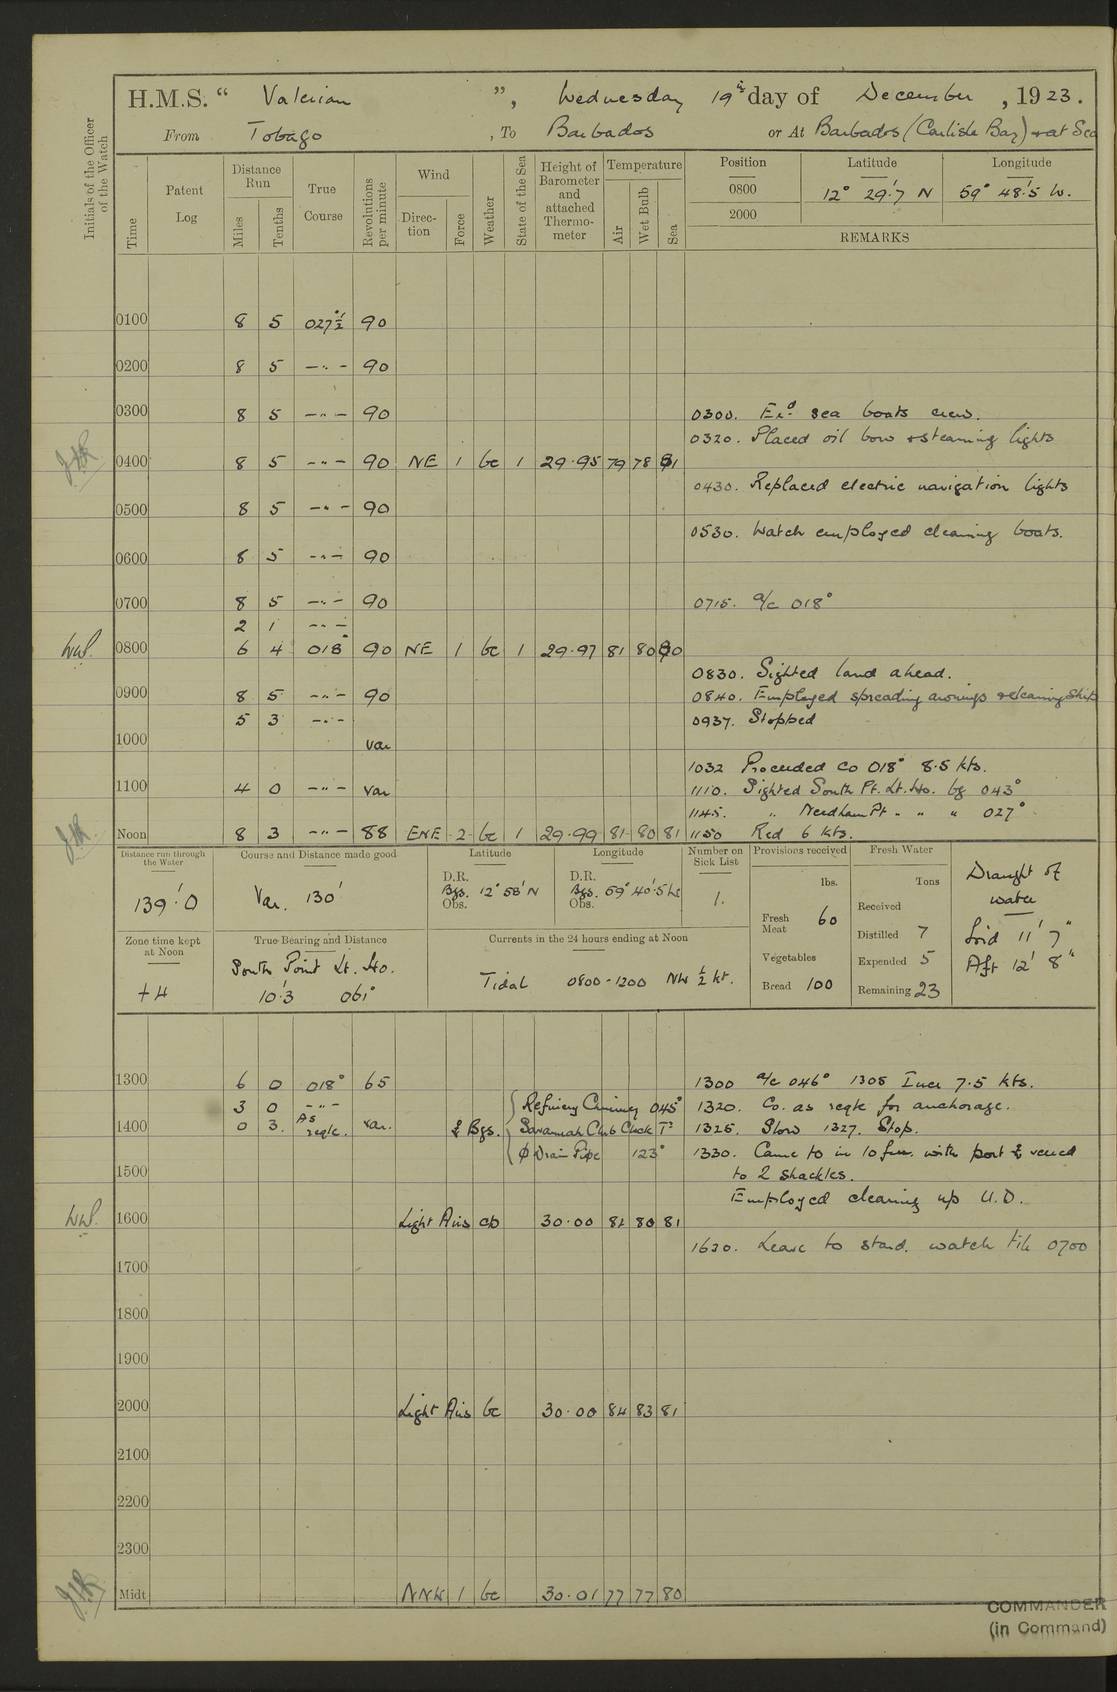 H.M.S. “ Valerian ”, Wednesday 19th day of December , 1923.
From Tobago , To Barbados or At Barbados (Carlisle Bay) & at Sea
Initials of the Officer of the Watch
Time
Patent Log
Distance Run
Miles
Tenths
True Course
Revolutions per minute
Wind
Direction
Force
Weather
State of the Sea
Height of Barometer and attached Thermometer
Temperature
Air
Wet Bulb
Sea
Position Latitude Longitude
0800 12° 29'.7 N 59° 48'.5 W.
2000
REMARKS
0100 8 5 027°½ 90
0200 8 5 -"- 90
0300 8 5 -"- 90 0300. Exd. sea boats crew.
0320. Placed oil bow & steaming lights
0400 8 5 -"- 90 NE 1 bc 1 29.95 79 78 81
0430. Replaced electric navigation lights
0500 8 5 -"- 90
0530. Watch employed cleaning boats.
0600 8 5 -"- 90
0700 8 5 -"- 90 0715. a/c 018°
2 1 -"-
0800 6 4 018° 90 NE 1 bc 1 29.97 81 80 80
0830. Sighted land ahead.
0900 8 5 -"- 90 0840. Employed spreading awnings & cleaning ship
5 3 -"- 0937. Stopped
1000 var
1032 Proceeded Co 018° 8.5 kts.
1100 4 0 -"- var 1110. Sighted South Pt. Lt. Ho. bg 043°
1145. " Needham Pt. " " " 027°
Noon 8 3 -"- 88 ENE 2 bc 1 29.99 81 80 81 1150 Red 6 kts.
Distance run through the Water
139'.0
Course and Distance made good
Var. 130'
Latitude
D.R.
Bgs. 12° 58' N
Obs.
Longitude
D.R.
Bgs. 59° 40'.5 W
Obs.
Number on Sick List
1.
Provisions received
lbs.
Fresh Meat 60
Vegetables
Bread 100
Fresh Water
Tons
Received
Distilled 7
Expended 5
Remaining 23
Draught of water
Ford 11' 7"
Aft 12' 8"
Zone time kept at Noon
+4
True Bearing and Distance
South Point Lt. Ho.
10'.3 061°
Currents in the 24 hours ending at Noon
Tidal 0800-1200 NW ½ kt.
1300 6 0 018° 65 1300 a/c 046° 1305 Incr 7.5 kts.
3 0 -"- Refinery Chimney 045° 1320. Co. as reqte for anchorage.
1400 0 3. As reqte. var. Bgs. Savannah Club Clock Tr 1325. Slow 1327. Stop.
Φ Drain Pipe 123° 1330. Came to in 10 fms. with port veered
1500 to 2 shackles.
Employed clearing up U.D.
1600 Light Airs cb 30.00 82 80 81
1630. Leave to stard. watch till 0700
1700
1800
1900
2000 Light Airs bc 30.00 84 83 81
2100
2200
2300
Midt NNW 1 bc 30.01 77 77 80
COMMANDER
(in Command)